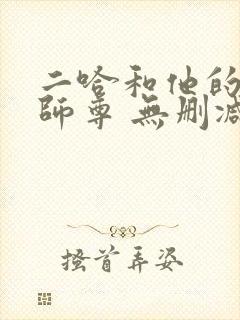 二哈和他的
師尊 無删减
搔首弄姿